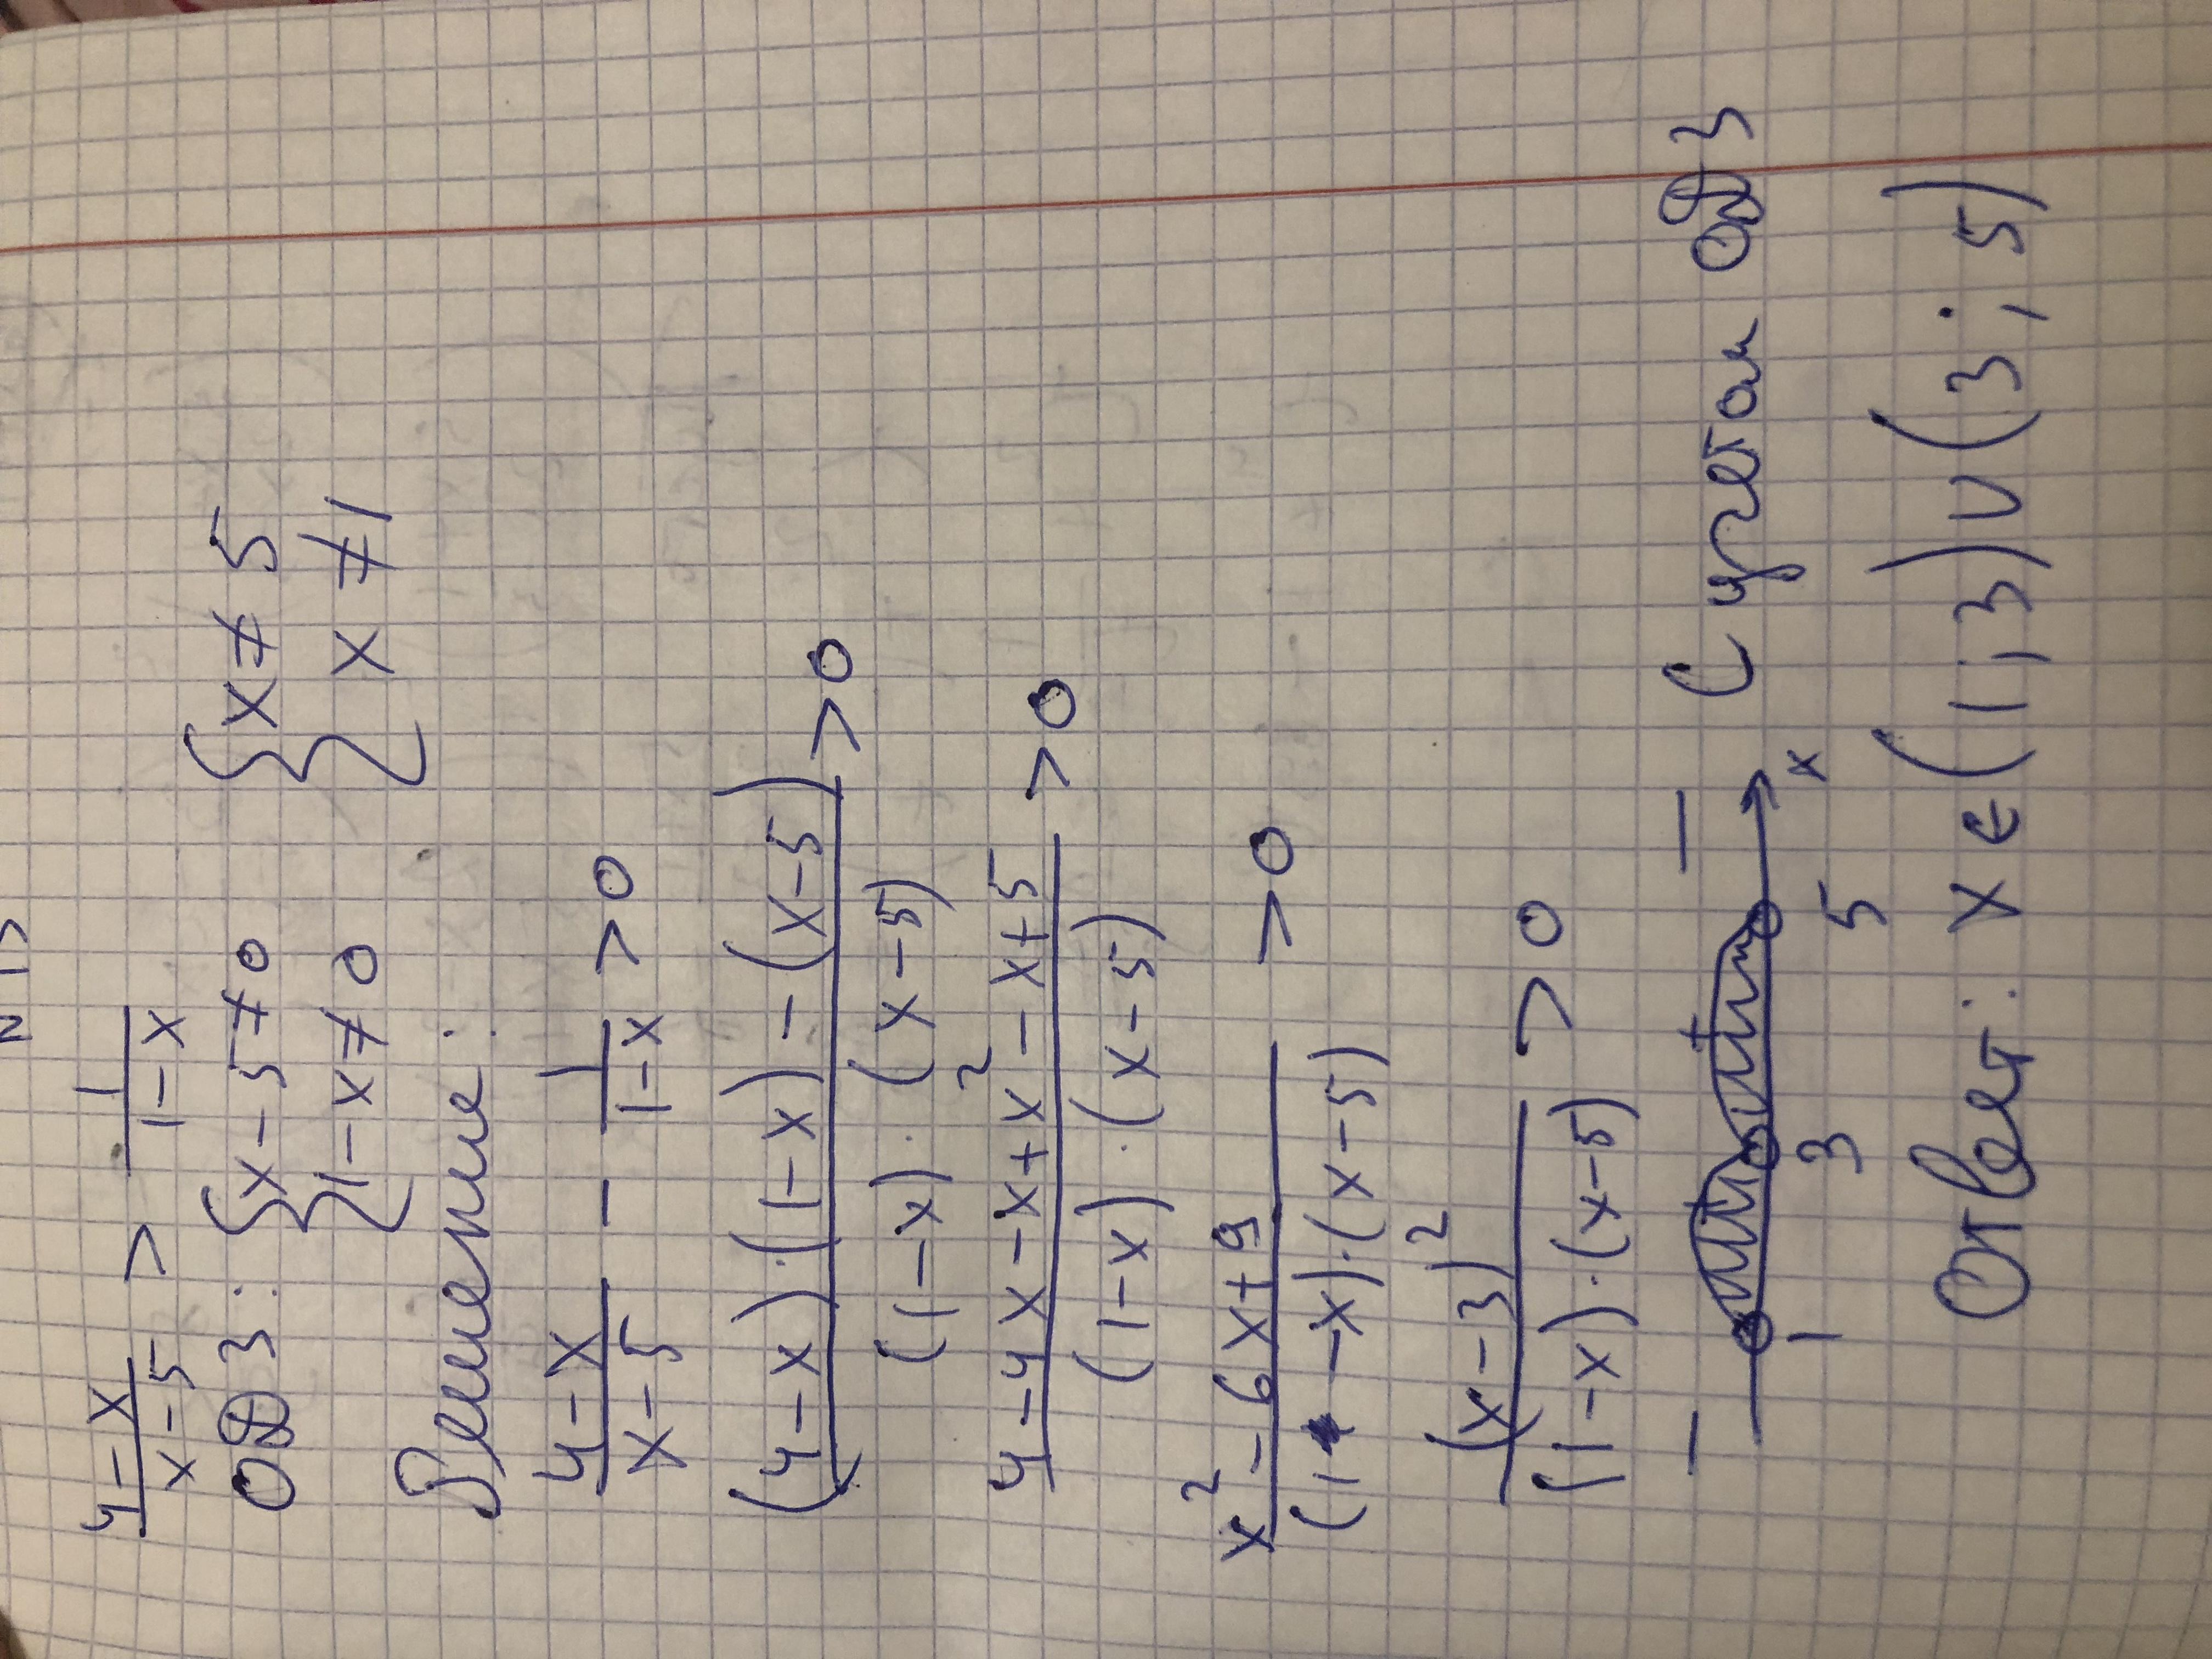 (4-x)/(x-5) > 1/(1-x)
ОДЗ: {x-5≠0 {x≠5
{1-x≠0 {x≠1
Решение:
(4-x)/(x-5) - 1/(1-x) >0
((4-x)·(1-x)-(x-5))/((1-x)·(x-5)) >0
(4-4x-x+x²-x+5)/((1-x)·(x-5)) >0
(x²-6x+9)/((1-x)·(x-5)) >0
(x-3)²/((1-x)·(x-5)) >0
- + + - С учетом ОДЗ
1 3 5 x
Ответ: x∈(1;3)∪(3;5)